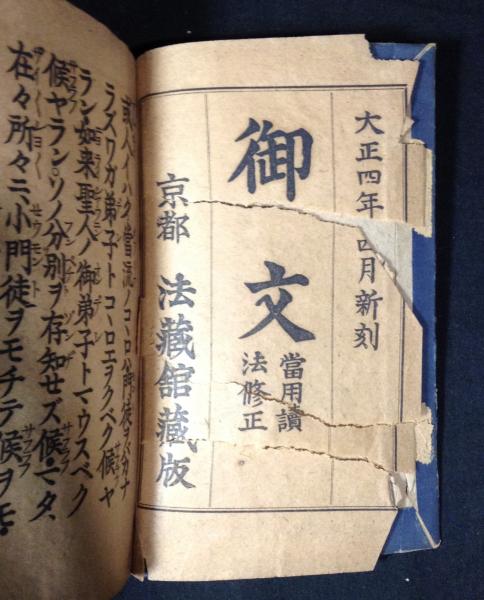 大正四年四月新刻
御文
當用讀
法修正
京都 法藏館藏版
或人イハク當流ノコヽロハ門徒ヲバカナ
ラズワガ弟子トコヽロエヲクベク候ヤ
ラン如來聖人ノ御弟子トマウスベク
候ヤランソノ分別ヲ存知セズ候マタ
在々所々ニ小門徒ヲモチテ候ヲモ